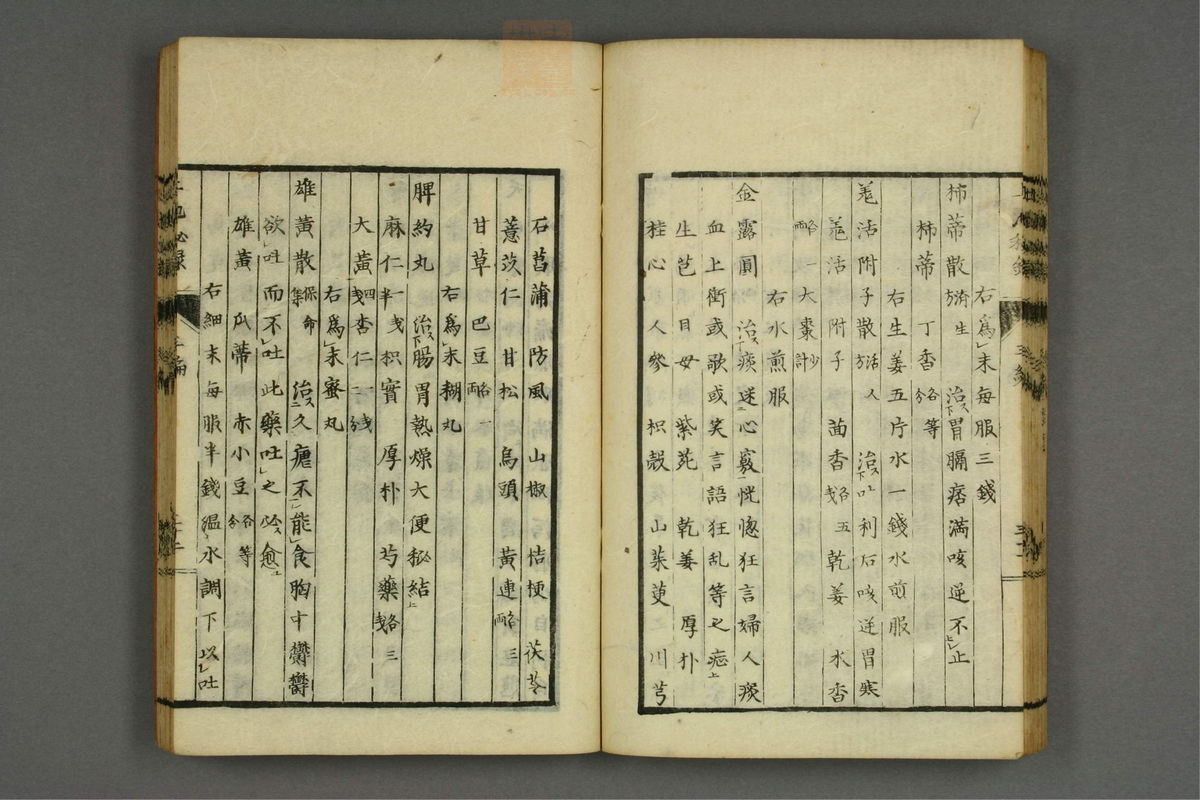 右為末每服三錢
柿蒂散 済生方 治胃膈痞満咳逆不止
柿蒂 丁香 各等分
右生姜五片水一錢水煎服
羗活附子散 活人方 治吐利后咳逆胃寒
羗活 附子 茴香 各五戔 乾姜 水香
各一両 大棗 少計
右水煎服
金露圓 治痰迷心竅恍惚狂言婦人痰
血上衝或歌或笑言語狂乱等之症
生芑 貝母 紫苑 乾姜 厚朴
桂心 人參 枳殻 山茱萸 川芎
石菖蒲 防風 山椒 桔梗 茯苓
薏苡仁 甘松 烏頭 黃連 各三両
甘草 巴豆 各一両
右為末糊丸
脾約丸 治腸胃熱燥大便秘結
麻仁 一戔半 枳實 厚朴 芍藥 各三戔
大黃 四戔 杏仁 一戔二分
右為末蜜丸
雄黃散 保命集 治久瘧不能食胸中鬱鬱
欲吐而不吐此藥吐之必愈
雄黃 爪蒂 赤小豆 各等分
右細末每服半錢温水調下以吐